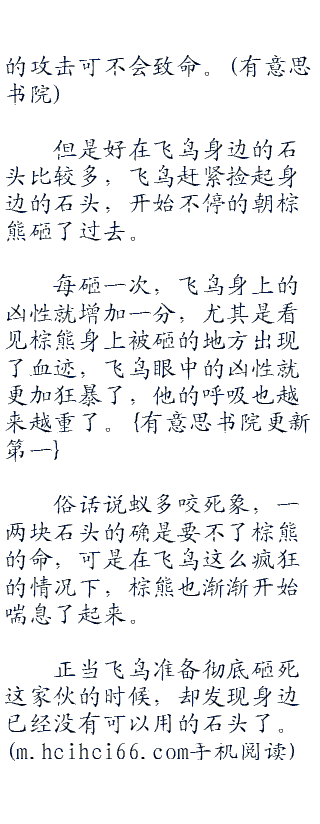 的攻击可不会致命。(有意思
书院)
但是好在飞鸟身边的石
头比较多，飞鸟赶紧捡起身
边的石头，开始不停的朝棕
熊砸了过去。
每砸一次，飞鸟身上的
凶性就增加一分，尤其是看
见棕熊身上被砸的地方出现
了血迹，飞鸟眼中的凶性就
更加狂暴了，他的呼吸也越
来越重了。{有意思书院更新
第一}
俗话说蚁多咬死象，一
两块石头的确是要不了棕熊
的命，可是在飞鸟这么疯狂
的情况下，棕熊也渐渐开始
喘息了起来。
正当飞鸟准备彻底砸死
这家伙的时候，却发现身边
已经没有可以用的石头了。
(m.hcihci66.com手机阅读)